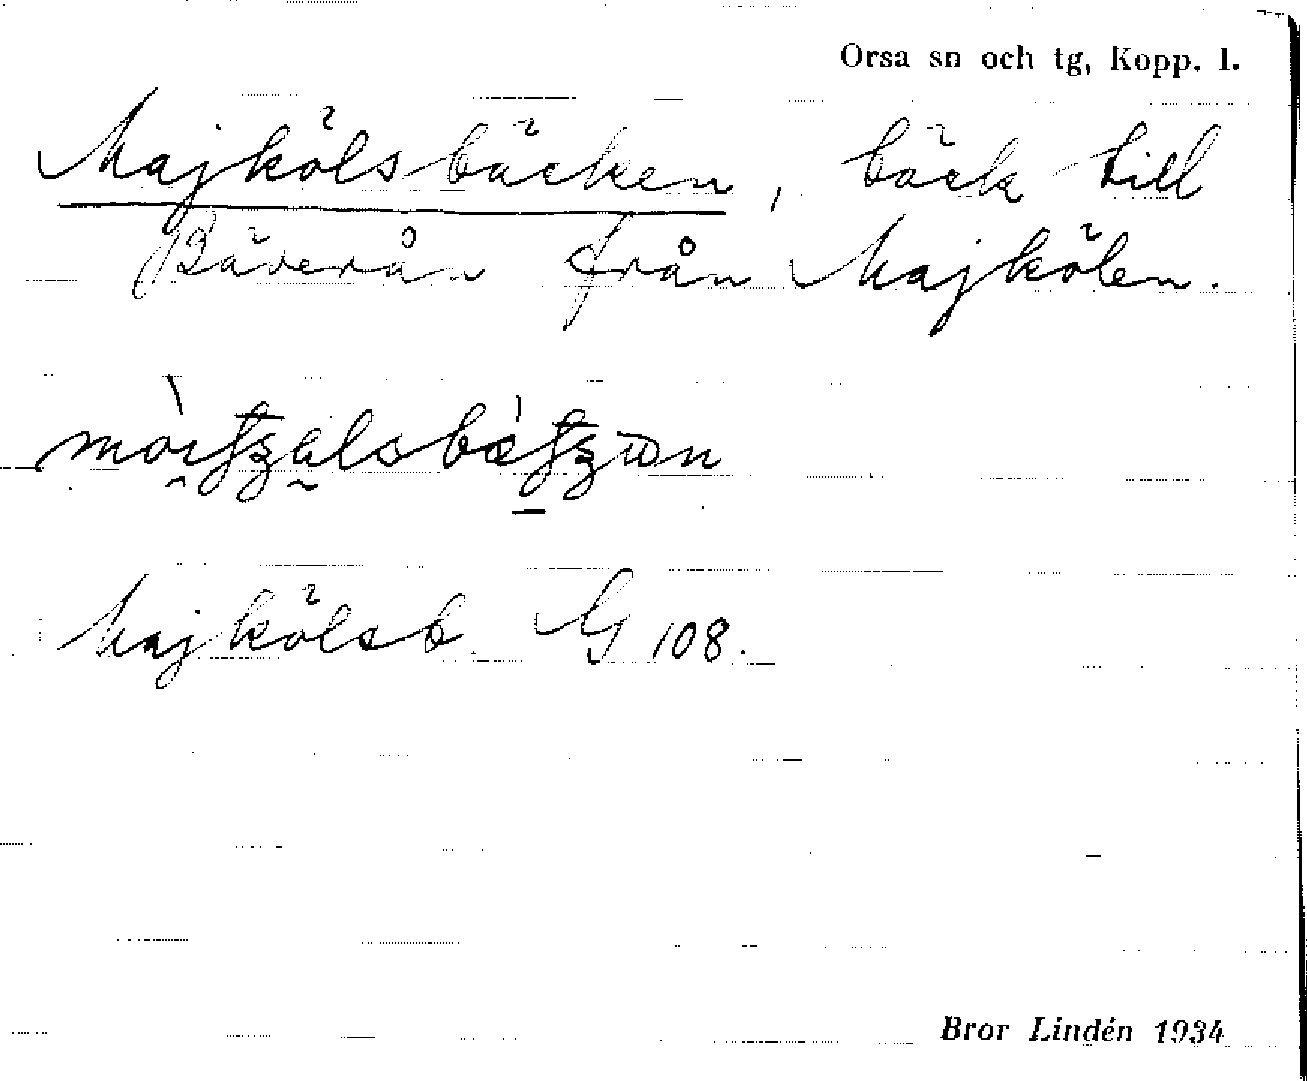 Orsa sn och tg, Kopp. l.
Majkölsbäcken, bäck till
Bäverån från Majkölen.
Majkölsb. G 108.
Bror Lindén 1934